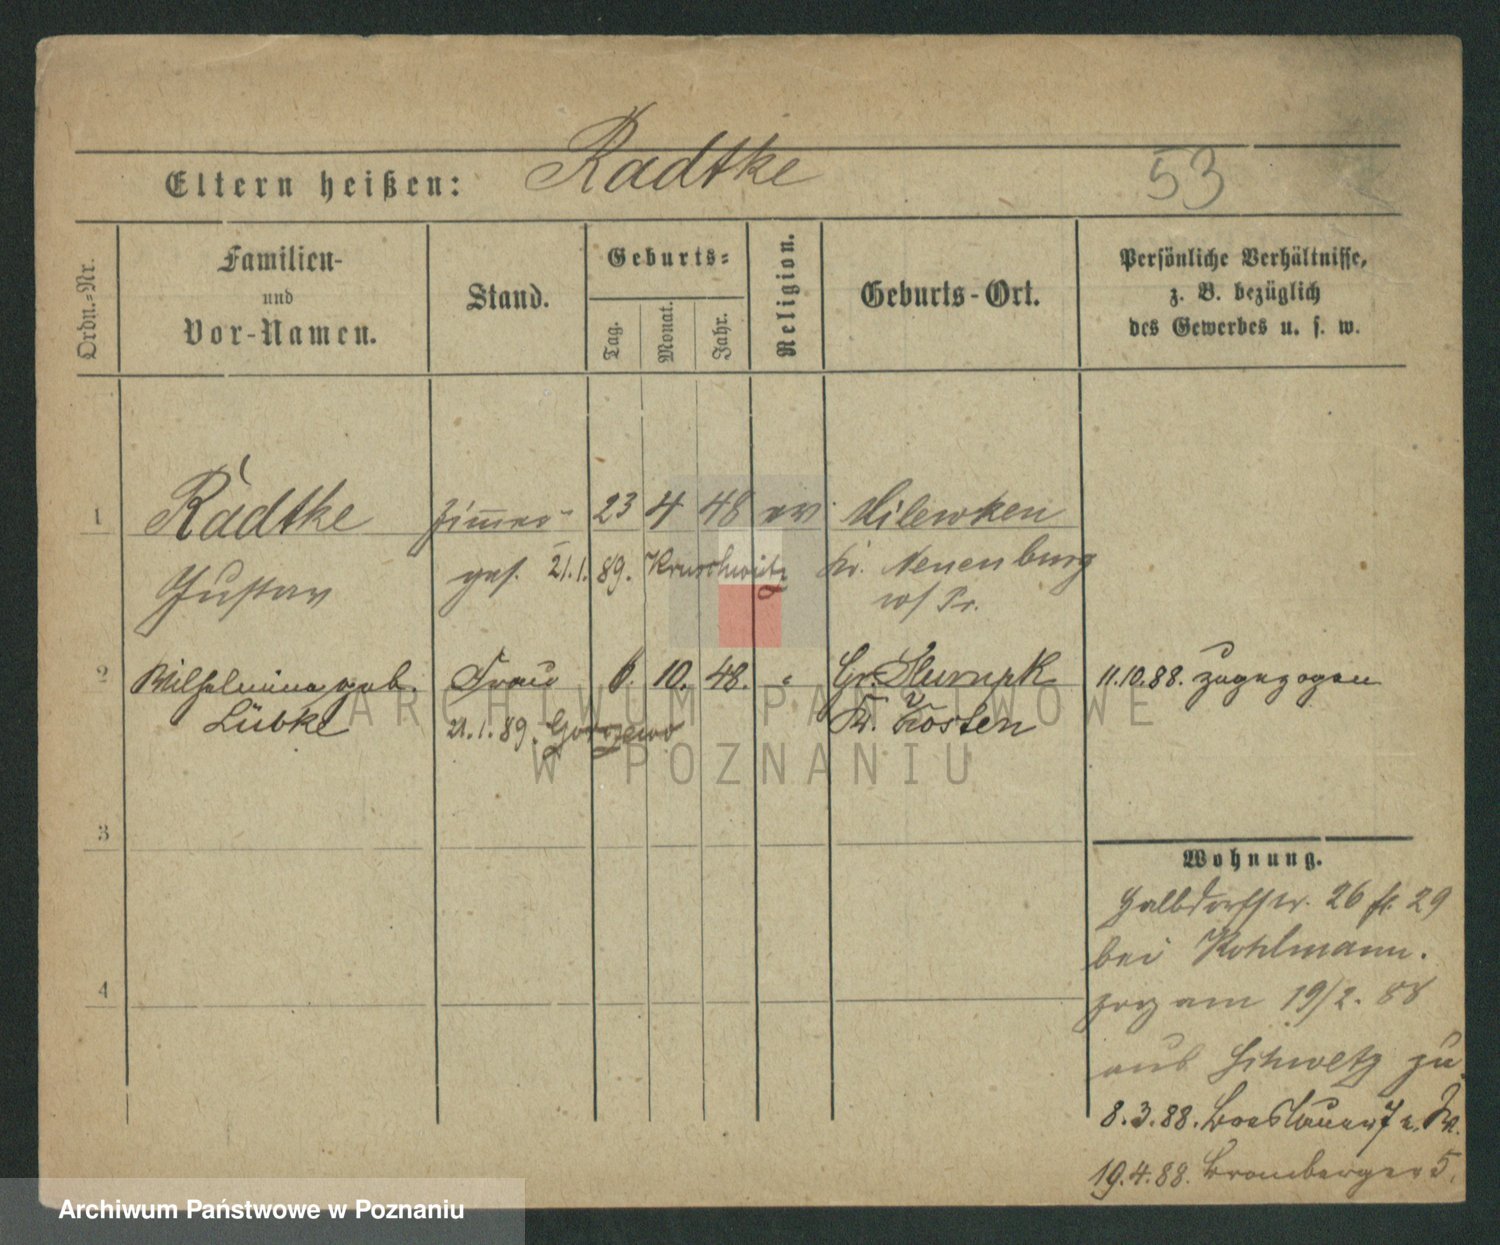 Eltern heißen: Radtke 53
Ordn.-Nr.
Familien-
und
Vor-Namen.
Stand.
Geburts-
Tag.
Monat.
Jahr.
Religion.
Geburts-Ort.
Persönliche Verhältnisse,
z. B. bezüglich
des Gewerbes u. s. w.
1 Radtke Zimmer- 23 4 48 ev Milewken
Gustav ges. 21.1.89. Kruschwitz Kr. Neuenburg
W/Pr.
2 Wilhelmina geb. Frau 6. 10. 48. " Gr. 11.10.88. zugezogen
Lübke 21.1.89. Gorzewo Kr. Kosten
3
4
Wohnung.
Halbdorfstr. 26 29
bei Kohlmann.
zog am 19/2. 88
aus Schwetz zu.
8.3.88. Breslauer
19.4.88. Bromberger 5.
ARCHIWUM PAŃSTWOWE
W POZNANIU
Archiwum Państwowe w Poznaniu